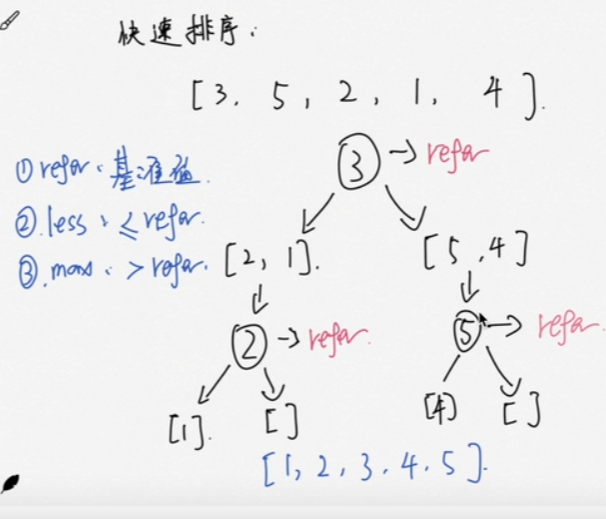 快速排序:
[3. 5, 2, 1, 4].
3 → refer
① refer: 基准值.
② less: ≤ refer.
③ more: > refer.
[2, 1].
[5, 4]
2 → refer.
5 → refer.
[1]. [ ]
[4] [ ]
[1, 2, 3, 4, 5].